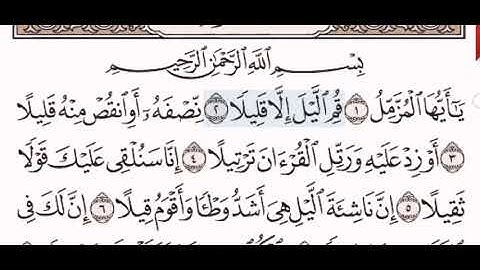 بِسْمِ ٱللَّهِ ٱلرَّحْمَٰنِ ٱلرَّحِيمِ
يَٰٓأَيُّهَا ٱلْمُزَّمِّلُ ١ قُمِ ٱلَّيْلَ إِلَّا قَلِيلًا ٢ نِّصْفَهُۥٓ أَوِ ٱنقُصْ مِنْهُ قَلِيلًا
٣ أَوْ زِدْ عَلَيْهِ وَرَتِّلِ ٱلْقُرْءَانَ تَرْتِيلًا ٤ إِنَّا سَنُلْقِى عَلَيْكَ قَوْلًا
ثَقِيلًا ٥ إِنَّ نَاشِئَةَ ٱلَّيْلِ هِىَ أَشَدُّ وَطْـًٔا وَأَقْوَمُ قِيلًا ٦ إِنَّ لَكَ فِى